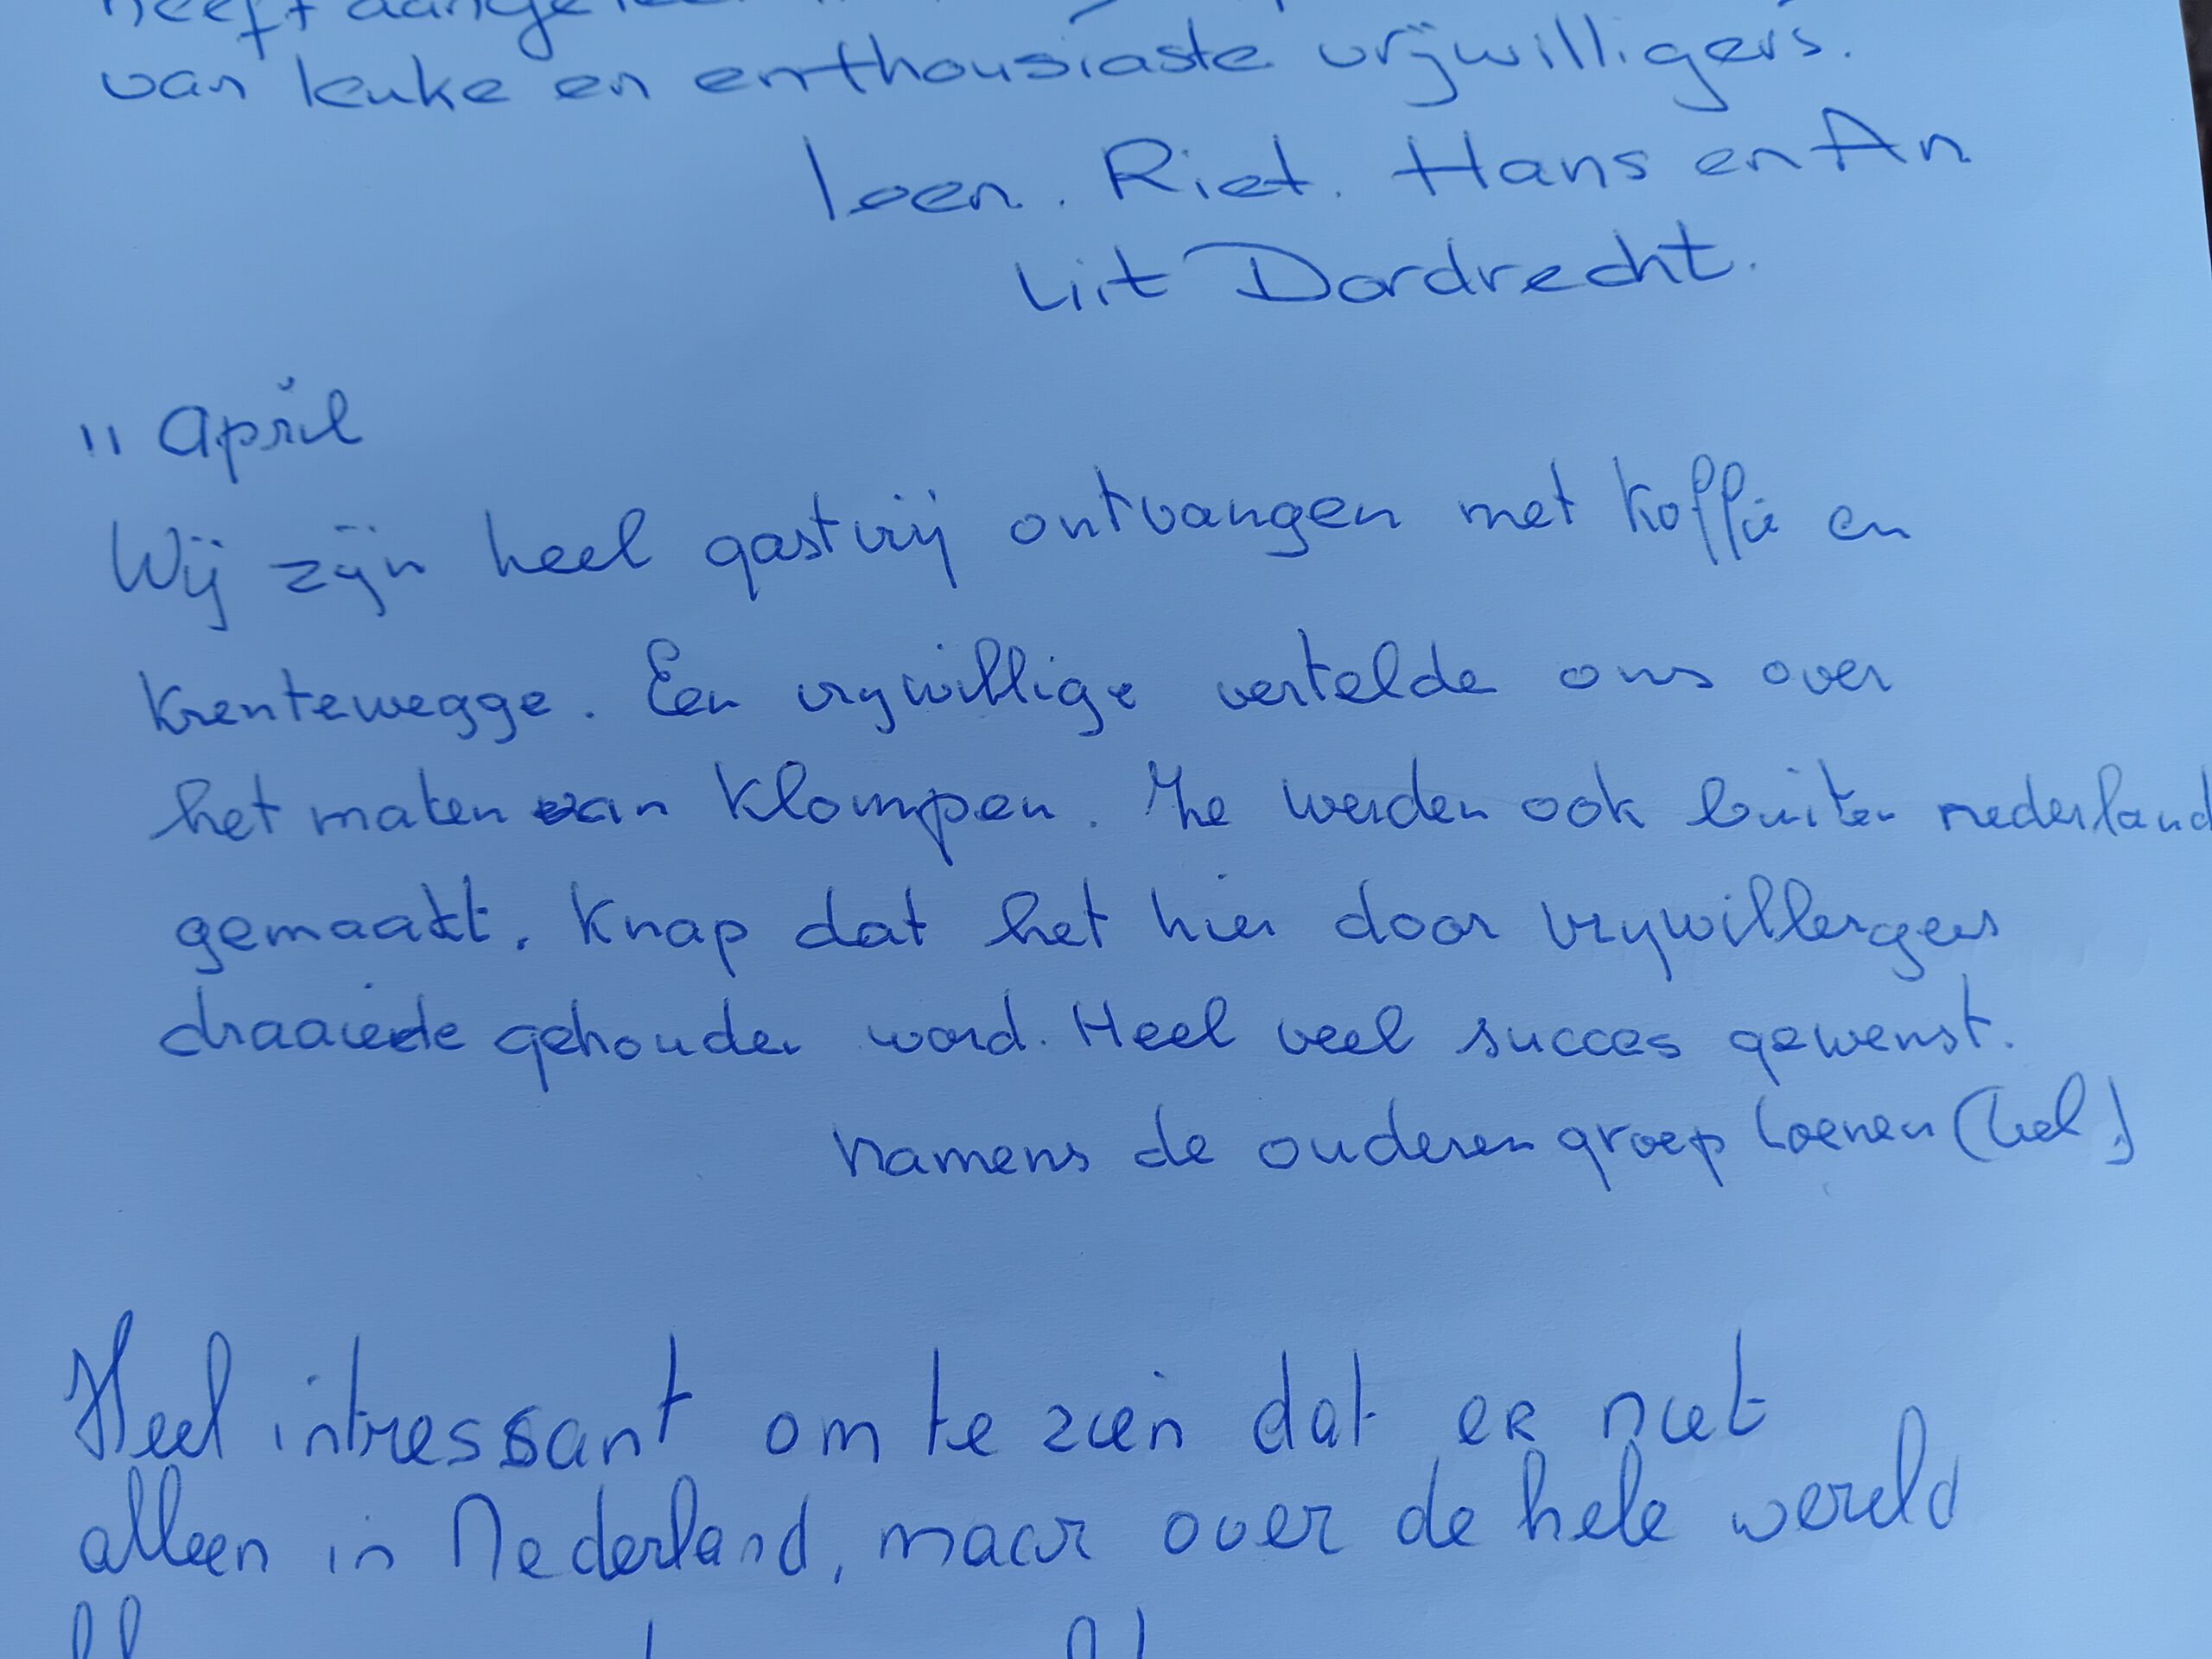 heeft
van leuke en enthousiaste vrijwilligers.
Loen. Riet. Hans en An
uit Dordrecht.
11 April
Wij zijn heel gastvrij ontvangen met koffie en
Krentewegge. Een vrywillige vertelde ons over
het maken van Klompen. Ze werden ook buiten nederland
gemaakt. Knap dat het hier door vrywillergers
draaiende gehouden word. Heel veel succes gewenst.
Namens de ouderen groep Loenen (Gel.)
Heel intressant om te zien dat er niet
alleen in Nederland, maar over de hele wereld